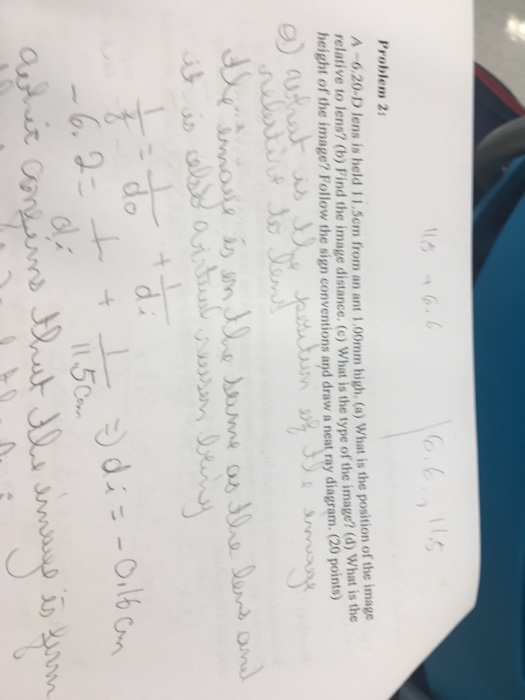 11.5 → 6.6
6.6, 11.5
Problem 2:
A -6.20-D lens is held 11.5cm from an ant 1.00mm high. (a) What is the position of the image
relative to lens? (b) Find the image distance. (c) What is the type of the image? (d) What is the
height of the image? Follow the sign conventions and draw a neat ray diagram. (20 points)
a) what is the position of the image
relative to lens
the image is on the same as the lens and
it is also virtual reason being
1/f = 1/do + 1/di
-6.2 = 1/di + 1/11.5cm => di = -0.16 cm
confirms that the image is form